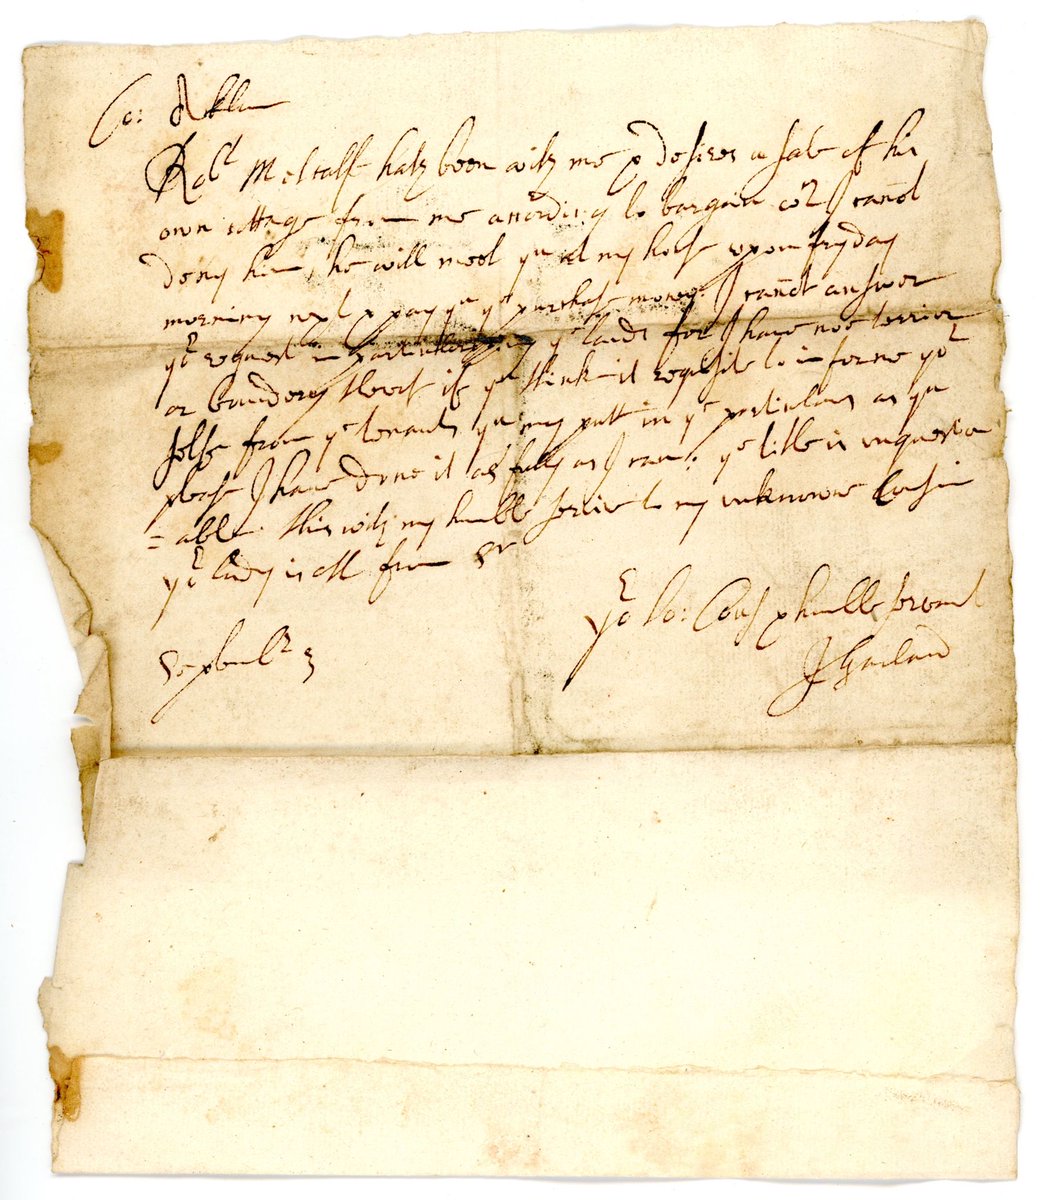 Co: Acklam
Robt Metcalfe hath been with me & desires a sale of his
own cottage from me according to bargain wch I cannot
deny him, he will meet you at my house upon fryday
morning next & pay you ye purchase money. I cannot answer
yor request in particularizing ye lands for I have noe terrier
or boundery thereof if you think it requisite to informe yor
selfe from ye tenants you may putt in ye perticulars as you
please I have done it as fully as I can: ye title is unquestion
=able. this with my humble service to my unknowne Cousin
yor lady is all from Sr
yor lo: Cous & humble servant
J Garland
Septembr 3